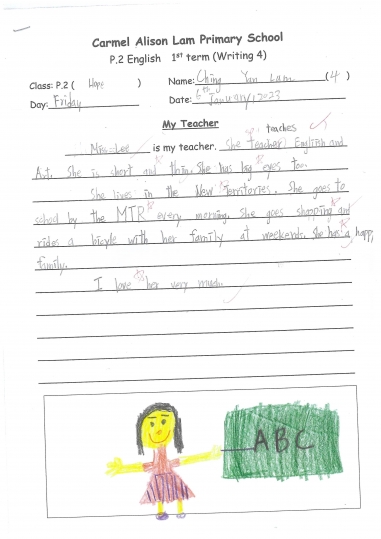 Carmel Alison Lam Primary School
P.2 English 1st term (Writing 4)
Class: P.2 ( Hope ) Name: Ching Yan Lam (4)
Day: Friday Date: 6th January, 2023
My Teacher
teaches
Miss Lee is my teacher. She teacher English and
Art. She is short and thin. She has big eyes, too.
She lives in the New Territories. She goes to
school by the MTR every morning. She goes shopping and
rides a bicycle with her family at weekends. She has a happy
family.
I love her very much.
ABC